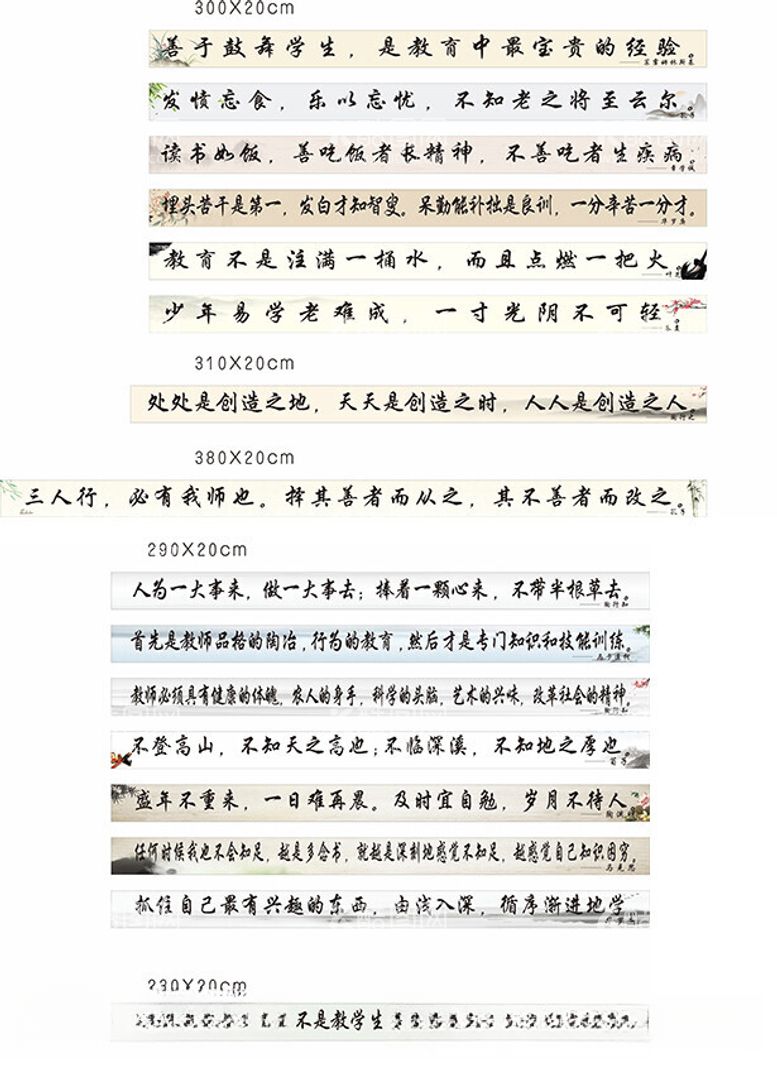 300X20cm
善于鼓舞学生，是教育中最宝贵的经验。
——苏霍姆林斯基
发愤忘食，乐以忘忧，不知老之将至云尔。
——孔子
读书如饭，善吃饭者长精神，不善吃者生疾病。
——章学诚
埋头苦干是第一，发白才知智叟。呆勤能补拙是良训，一分辛苦一分才。
——华罗庚
教育不是注满一桶水，而且点燃一把火。
少年易学老难成，一寸光阴不可轻。
——朱熹
310X20cm
处处是创造之地，天天是创造之时，人人是创造之人。
——陶行之
380X20cm
三人行，必有我师也。择其善者而从之，其不善者而改之。
——孔子
290X20cm
人为一大事来，做一大事去；捧着一颗心来，不带半根草去。
——陶行知
首先是教师品格的陶冶，行为的教育，然后才是专门知识和技能训练。
教师必须具有健康的体魄，农人的身手，科学的头脑，艺术的兴味，改革社会的精神。
——陶行知
不登高山，不知天之高也；不临深溪，不知地之厚也。
——荀子
盛年不重来，一日难再晨。及时宜自勉，岁月不待人。
——陶渊明
任何时候我也不会知足，越是多念书，就越是深刻地感觉不知足，越感觉自己知识困穷。
——马克思
抓住自己最有兴趣的东西，由浅入深，循序渐进地学
230X20cm
不是教学生